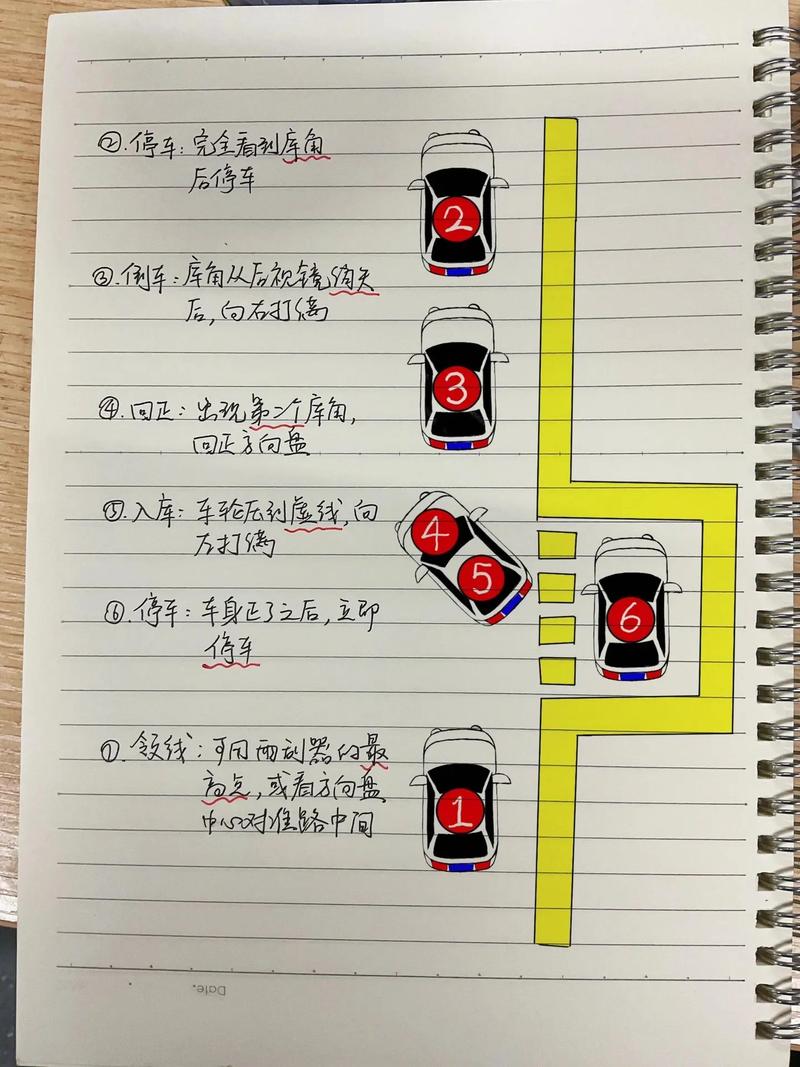 ②.停车：完全看到库角
后停车
③.倒车：库角从后视镜消失
后，向右打满
④.回正：出现第二个库角，
回正方向盘
⑤.入库：车轮压到虚线，向
左打满
⑥.停车：车身正了之后，立即
停车
①.领线：可用雨刮器的最
高点，或看方向盘
中心对准路中间
2
3
4
5
6
1
Date.